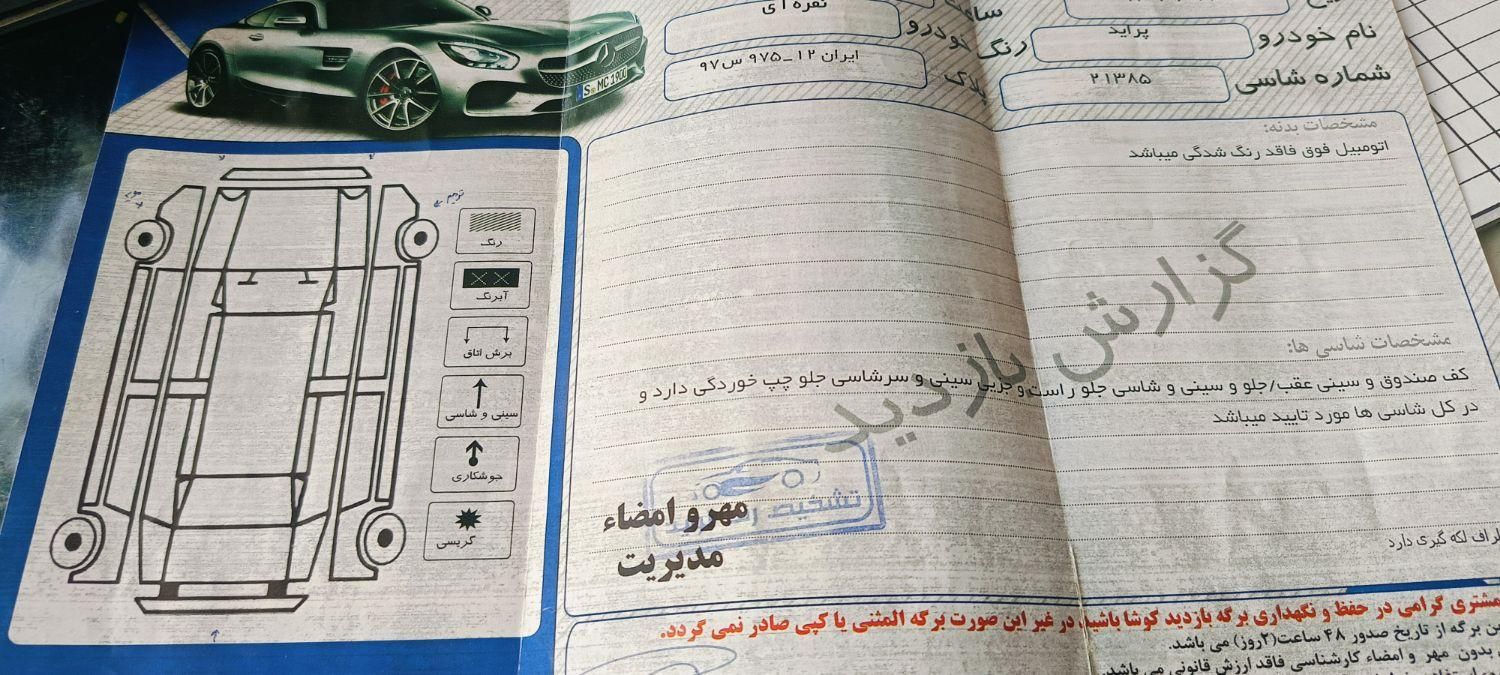 نقره ای
رنگ خودرو
نام خودرو
پراید
پلاک
ایران ۱۲ _ ۹۷۵ س ۹۷
شماره شاسی
۲۱۳۸۵
S MC 1900
مشخصات بدنه:
اتومبیل فوق فاقد رنگ شدگی میباشد
گزارش بازدید
مشخصات شاسی ها:
کف صندوق و سینی عقب/جلو و سینی و شاسی جلو راست و جزیی سینی و سرشاسی جلو چپ خوردگی دارد و
در کل شاسی ها مورد تایید میباشد
لکه گیری دارد
ترمیم
رنگ
آبرنگ
برش اتاق
سینی و شاسی
جوشکاری
گریسی
تشخیص رنگ
مهر و امضاء
مدیریت
مشتری گرامی در حفظ و نگهداری برگه بازدید کوشا باشید، در غیر این صورت برگه المثنی یا کپی صادر نمی گردد.
برگه از تاریخ صدور ۴۸ ساعت(۲روز) می باشد.
بدون مهر و امضاء کارشناسی فاقد ارزش قانونی می باشد.